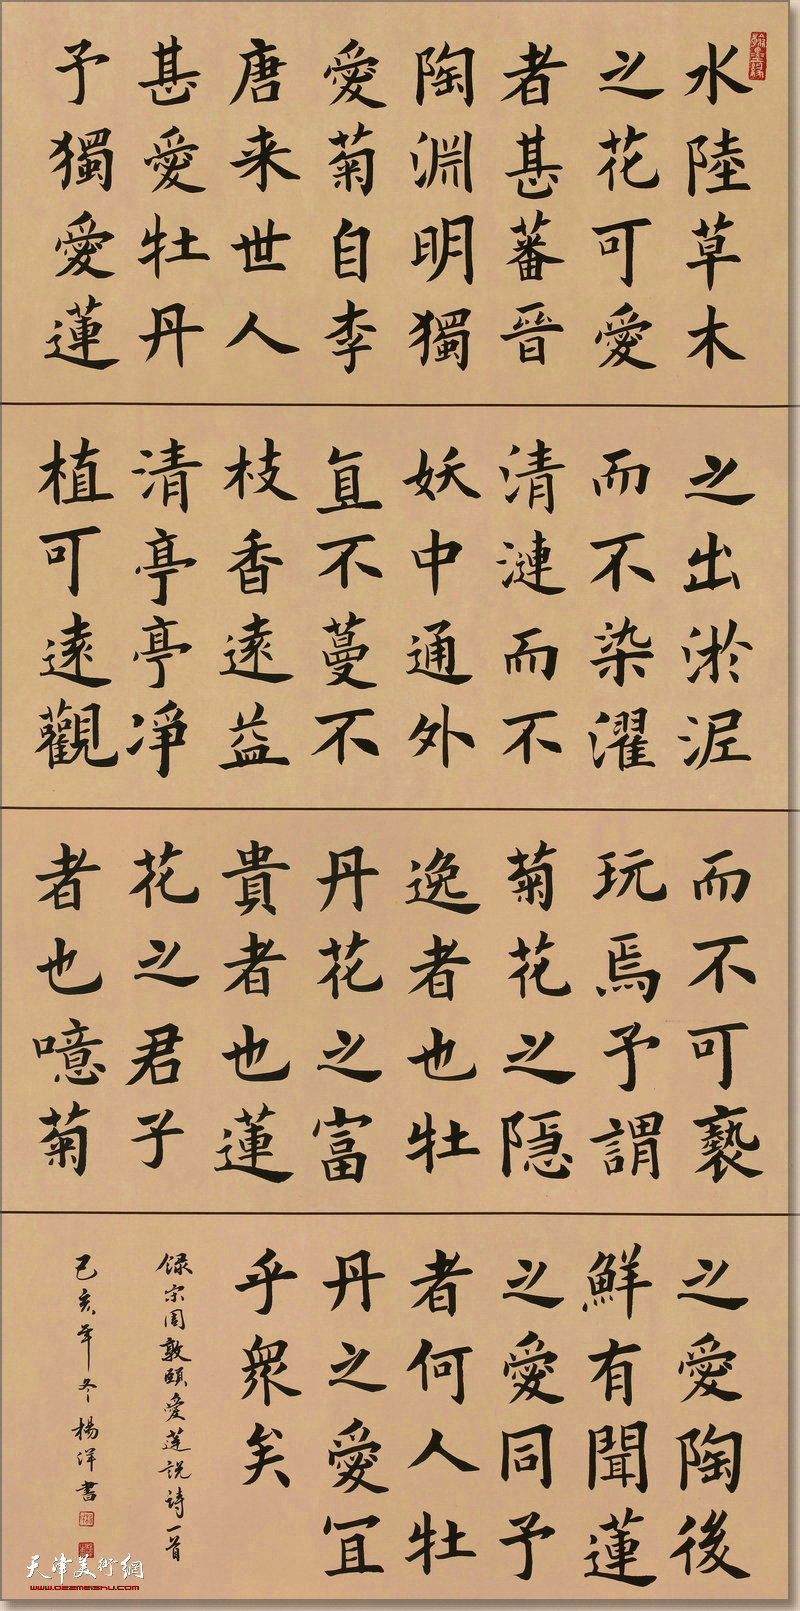 水陸草木
之花可愛
者甚蕃晉
陶淵明獨
愛菊自李
唐来世人
甚愛牡丹
予獨愛蓮
之出淤泥
而不染濯
清漣而不
妖中通外
直不蔓不
枝香遠益
清亭亭净
植可遠觀
而不可褻
玩焉予謂
菊花之隐
逸者也牡
丹花之富
貴者也蓮
花之君子
者也噫菊
之愛陶後
鮮有聞蓮
之愛同予
者何人牡
丹之愛宜
乎衆矣
録宗周敦頤愛莲説詩一首
己亥年冬楊洋書
天津美術網